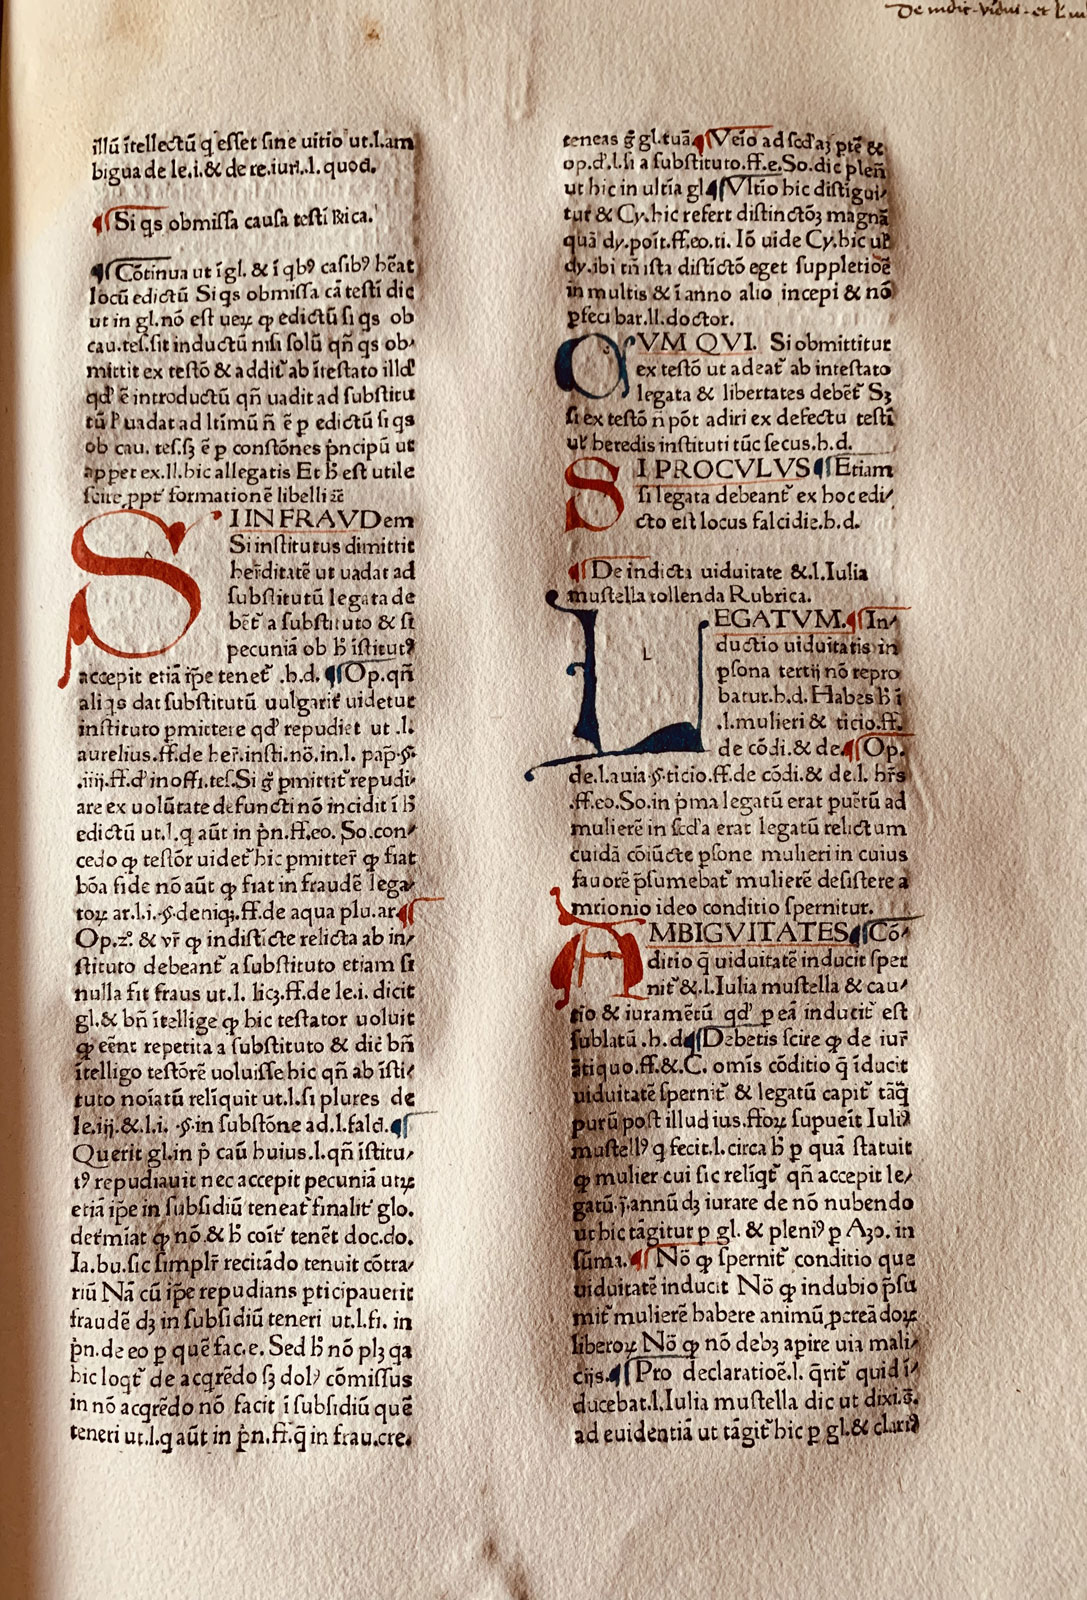 De indic. vidui. et l. iu
illū ītellectū q̄ esset sine uitio ut.l.am
bigua de le.i.& de re.iuri..l. quod.
¶ Si qs obmissa causa testī Rica.
¶ Cōtinua ut ī gl. & ī qbꝰ casibꝰ hēat
locū edictū Si qs obmissa cā testī dic
ut in gl.nō est ueꝝ ꝙ edictū si qs ob
cau.tes.sit inductū nisi solū qn̄ qs ob⸗
mittit ex testō & addit᷑ ab ītestato illd᷑
qd᷑ ē introductū qn̄ uadit ad substitu
tū ł uadat ad ltimū n̄ ē ꝑ edictū si qs
ob cau. tes.sꝫ ē ꝑ constōnes ṗncipū ut
appet ex.ll.hic allegatis Et ħ est utile
scire ꝓpt᷑ formationē libelli ⁊c̄
SI IN FRAVDem
Si institutus dimittit
her̄ditatē ut uadat ad
substitutū legata de
bēt᷑ a substituto & si
pecuniā ob ħ īstitutꝰ
accepit etiā ip̄e tenet᷑ .h.d. ¶ Op.qn̄
ali qs dat substitutū uulgarit᷑ uidetur
instituto ꝑmittere qd᷑ repudiet ut .l.
aurelius.ff.de her̄.insti.nō.in.l. pap̄.§.
.iiij.ff.d᷑ inoffi.tes.Si ḡ ꝑmittit᷑ repudi⸗
are ex uolūtate defuncti nō incidit ī ħ
edictū ut.l.q aūt in ṗn.ff.eo. So.con⸗
cedo ꝙ testōr uidet᷑ hic ꝑmitter̄ ꝙ fiat
bōa fide nō aūt ꝙ fiat in fraudē lega⸗
toꝝ ar.l.i.§.deniqꝫ.ff.de aqua plu.ar.¶
Op.zͦ. & vr̄ ꝙ indisticte relicta ab in⸗
stituto debeant᷑ a substituto etiam si
nulla fit fraus ut.l. licꝫ.ff.de le.i. dicit
gl.& bn̄ ītellige ꝙ hic testator uoluit
ꝙ eēnt repetita a substituto & dic bn̄
ītelligo testōrē uoluisse hic qn̄ ab īsti⸗
tuto noīatū reliquit ut.l.si plures de
le.iij.&.l.i. .§.in substōne ad.l.falcī.¶
Querit gl.in ṗ caū huius.l.qn̄ īstitu⸗
tꝰ repudiauit nec accepit pecuniā utꝝ
etiā ip̄e in subsidiū teneat᷑ finalit᷑ glo.
det᷑miāt ꝙ nō.& ħ coīt᷑ tenēt doc.do.
Ia.bu.sic simplr̄ recitādo tenuit cōtra⸗
riū Nā cū ip̄e repudians ꝑticipauerit
fraudē dꝫ in subsidiū teneri ut.l.fi. in
ṗn.de eo ꝑ quē fac.e. Sed ħ nō plꝫ qa
hic loqt᷑ de acqrēdo sꝫ dolꝰ cōmissus
in nō acqrēdo nō facit ī subsidiū quē
teneri ut.l.q aūt in ṗn.ff.q̄ in frau.cre.
teneas ḡ gl.tuā.¶ Veīo ad scd᷑aꝫ ptē &
op.d᷑.l.si a substituto.ff.e.So.dic plen̄
ut hic in ultīa gl.¶ Vltīo hic distigui⸗
tur & Cy.hic refert distinctōꝫ magnā
quā dy.poīt.ff.eo.ti. Iō uide Cy.hic uł
dy.ibi tn̄ ista disticto eget suppletiōē
in multis & ī anno alio incepi & nō
ꝑfeci bar.ll.doctor.
QVM QVI. Si obmittitur
ex testō ut adeat᷑ ab intestato
legata & libertates debēt᷑ Sꝫ
si ex testō n̄ pōt adiri ex defectu testī
uł heredis instituti tūc secus.h.d.
SI PROCVLVS ¶ Etiam
si legata debeant᷑ ex hoc edi⸗
cto est locus falcidie.h.d.
¶ De indicta uiduitate &.l.Iulia
mustella tollenda Rubrica.
LEGATVM.¶ In⸗
ductio uiduitatis in
ꝑsona tertij nō repro
batur.h.d. Habes ħ ī
.l.mulieri & ticio.ff.
de cōdi.& de.¶ Op.
de.l.auia.§.ticio.ff.de cōdi.& de.l. hr̄s
.ff.eo.So.in ṗma legatū erat puētū ad
mulierē in scd᷑a erat legatū relictum
cuidā cōiūcte ꝑsone mulieri in cuius
fauorē ṗsumebat᷑ mulierē desistere a
mr̄ionio ideo conditio spernitur.
AMBIGVITATES ¶ Cō⸗
ditio q̄ uiduitatē inducit sper
nit᷑ &.l.Iulia mustella & cau⸗
tio & iuramētū qd᷑ ꝑ eā inducit᷑ est
sublatū .h.d.¶ Debetis scire ꝙ de iur̄
ātiquo.ff.&.C. omīs cōditio q̄ īducit
uiduitatē spernit᷑ & legatū capit᷑ tāq̄
purū post illud ius.ffoꝝ supueīt Iuliꝰ
mustellꝰ q fecit.l.circa ħ ꝑ quā statuit
ꝙ mulier cui sic relīqt᷑ qn̄ accepit le⸗
gatū.j.annū dꝫ iurare de nō nubendo
ut hic tāgitur ꝑ gl. & pleniꝰ ꝑ Azo. in
sūma.¶ Nō ꝙ spernit᷑ conditio que
uiduitatē inducit Nō ꝙ indubio ṗsu
mit᷑ mulierē habere animū ꝓcreādoꝝ
liberoꝝ Nō ꝙ nō debꝫ apire uia mali⸗
cijs.¶ Pro declaratioē.l. q̄rit᷑ quid ī⸗
ducebat.l.Iulia mustella dic ut dixi.s̄.
ad euidentiā ut tāgit᷑ hic ꝑ gl.& clariꝰ